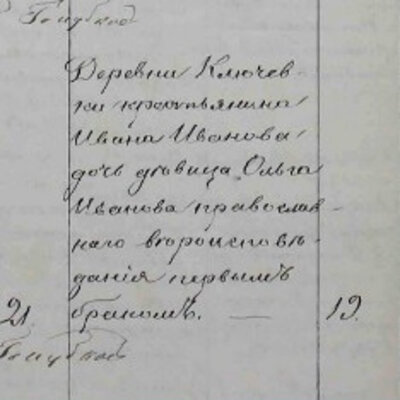 Деревни Ключев-
ки крестьянина
Ивана Иванова
дочь дѣвица Ольга
Иванова православ-
наго вѣроисповѣ-
данія первымъ
21 бракомъ. — 19.